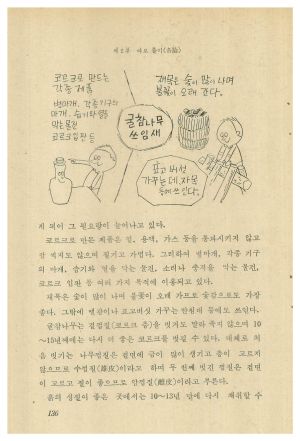 제 2 부 따로 풀이(各論)
코르크로 만드는
각종 제품
병마개, 각종기구의
마개, 습기와 열을
막는물건
코르크알판 등
굴참나무
쓰임새
재목은 숯이 많이 나며
불꽃이 오래 간다.
표고 버섯
가꾸는데,자루
등에 쓰인다.
게 되어 그 필요량이 늘어나고 있다.
코르크로 만든 제품은 물, 용액, 가스 등을 통과시키지 않고
잘 썩지도 않으며 질기고 가볍다. 그리하여 병마개, 각종 기구
의 마개, 습기와 열을 막는 물건, 소리나 충격을 막는 물건,
코르크 알판 등 여러 가지 목적에 이용되고 있다.
재목은 숯이 많이 나며 불꽃이 오래 가므로 숯감으로도 가장
좋다. 그밖에 땔감이나 표고버섯 가꾸는 받침재 등에도 쓰인다.
굴참나무는 겉껍질(코르크 층)을 벗겨도 말라 죽지 않으며 10
~15년째에는 다시 더 좋은 코르크를 벗길 수 있다. 대체로 처
음 벗기는 나무껍질은 겉면에 금이 많이 생기고 층이 고르지
않으므로 수껍질(雄皮)이라고 하며 두 번째 벗긴 껍질은 겉면
이 고르고 질이 좋으므로 암껍질(雌皮)이라고 부른다.
흙의 성질이 좋은 곳에서는 10~13년 만에 다시 채취할 수
136